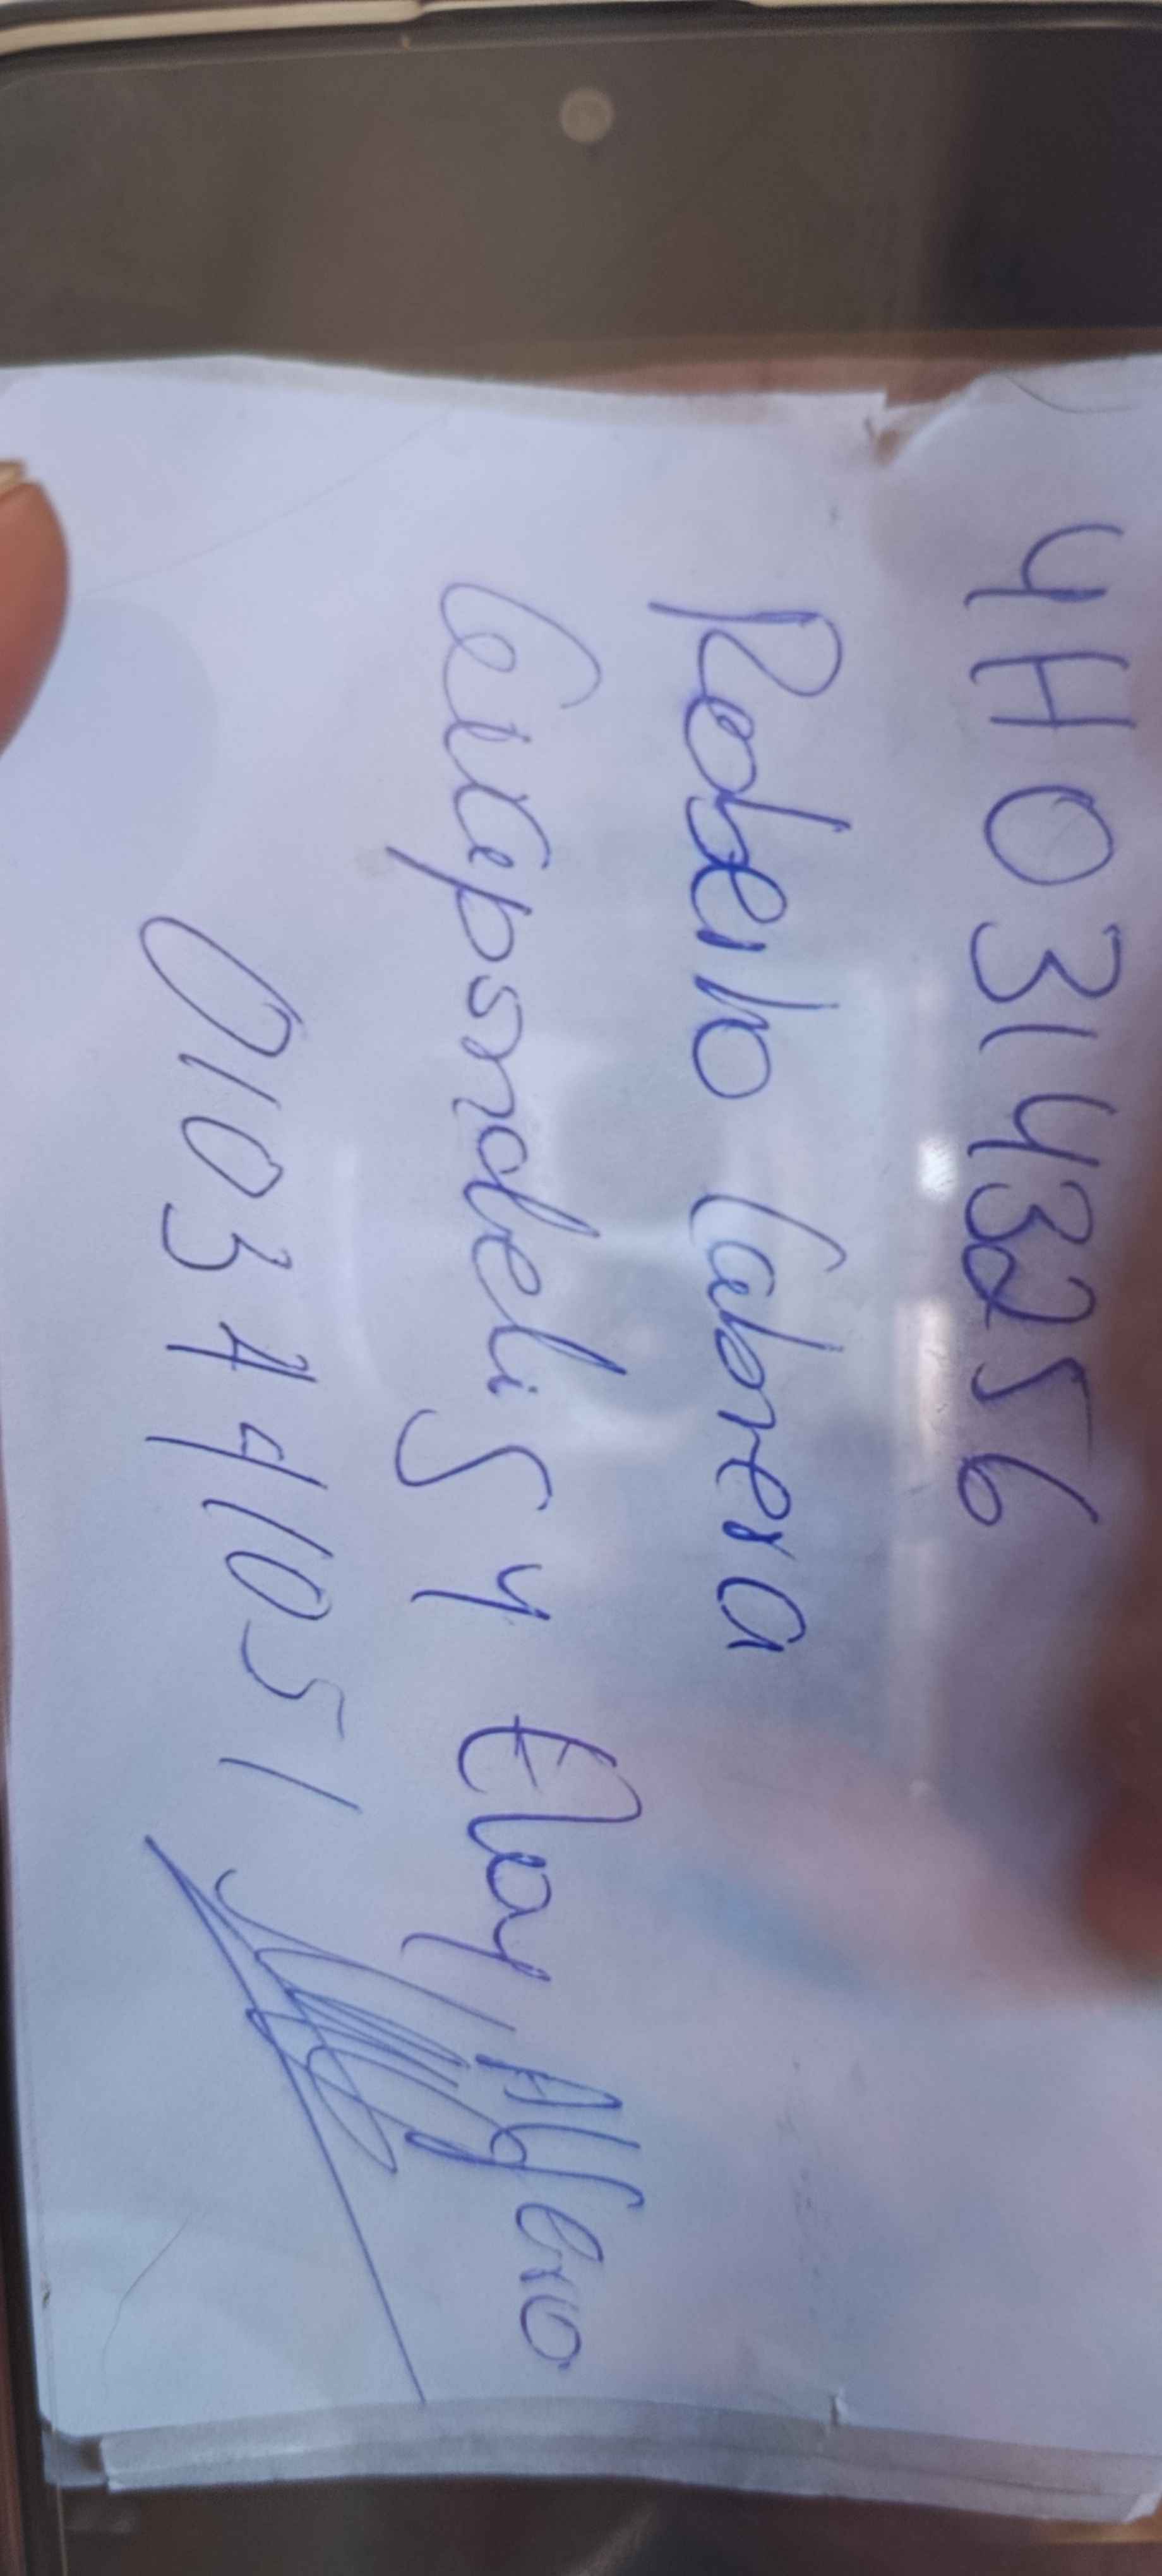 4H03143256
Roberto Cabrera
Guapondelig y Eloy Alfaro
0103441051